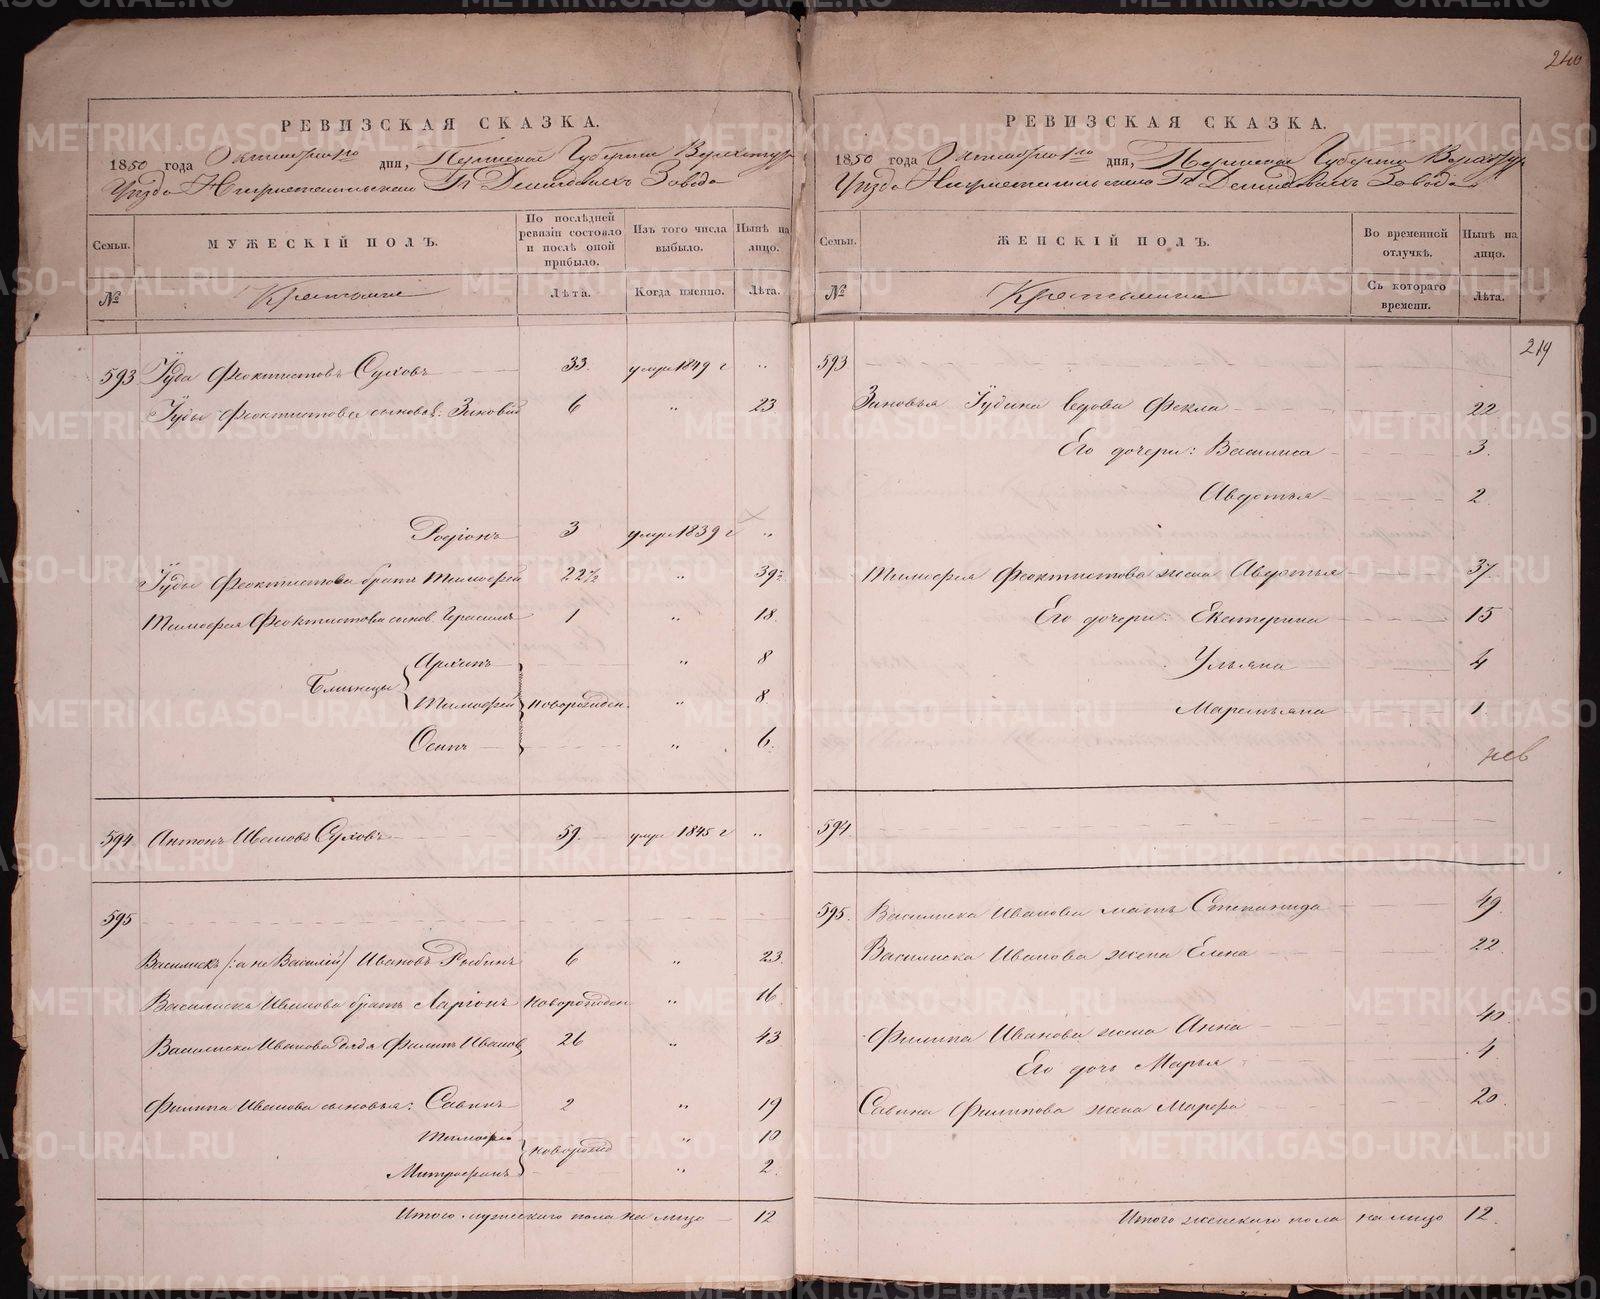 240
РЕВИЗСКАЯ СКАЗКА.
1850 года Октября 1го дня, Пермской Губернiи Верхотур
Уѣзда Нижнетагильскаго Гг Демидовыхъ Завода
Семьи.
МУЖЕСКІЙ ПОЛЪ.
По послѣдней ревизіи состояло и послѣ оной прибыло.
Изъ того числа выбыло.
Нынѣ на лицо.
№
Крестьяне
Лѣта.
Когда именно.
Лѣта.
593 Іуда Феоктистовъ Суховъ 33. умре 1849 г "
Іуды Феоктистова сыновья: Зиновiй 6 " 23
Родiонъ 3 умре 1839 г "
Іуды Феоктистова братъ Тимофей 22½ " 39½
Тимофея Феоктистова сынов. Герасимъ 1 " 18.
Близнецы
Архипъ " 8
Тимофей новорожден. " 8
Осипъ " 6.
594 Антонъ Ивановъ Суховъ 59. умре 1845 г "
595
Василискъ /:а не Василiй/ Ивановъ Рыбинъ 6 " 23
Василиска Иванова братъ Ларiонъ новорожден " 16
Василиска Иванова дядя Филипъ Ивановъ 26 " 43
Филипа Иванова сыновья: Савинъ 2 " 19
Тимофей " 10
новорожд
Митрофанъ " 2.
Итого мужескаго пола на лицо 12
РЕВИЗСКАЯ СКАЗКА.
1850 года Октября 1го дня, Пермской Губернiи Верхотур
Уѣзда Нижнетагильскаго Гг Демидовыхъ Завода
Семьи.
ЖЕНСКІЙ ПОЛЪ.
Во временной отлучкѣ.
Нынѣ на лицо.
№
Крестьянки
Съ котораго времени.
Лѣта.
219
593
Зиновья Іудина вдова Фекла 22
Его дочери: Василиса 3.
Авдотья 2
Тимофея Феоктистова жена Авдотья 37.
Его дочери: Екатерина 15
Ульяна 4
Маремьяна 1
594
595. Василиска Иванова мать Степанида 49.
Василиска Иванова жена Елена 22
Филипа Иванова жена Анна 40.
Его дочь Марья 4
Савина Филипова жена Марфа 20.
Итого женскаго пола на лицо 12.
METRIKI.GASO-URAL.RU